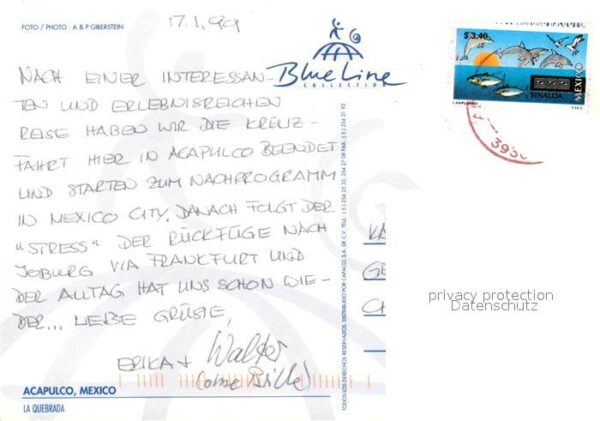 FOTO / PHOTO : A & P GIBERSTEIN
17.1.99
Blue Line
COLLECTION
NACH EINER INTERESSAN-
TEN UND ERLEBNISREICHEN
REISE HABEN WIR DIE KREUZ-
FAHRT HIER IN ACAPULCO BEENDET
UND STARTEN ZUM NACHPROGRAMM
IN MEXICO CITY. DANACH FOLGT DER
"STRESS" DER RÜCKFLÜGE NACH
JOBURG VIA FRANKFURT UND
DER ALLTAG HAT UNS SCHON WIE-
DER... LIEBE GRÜSSE,
ERIKA + Walter
(ohne Brille)
ACAPULCO, MEXICO
LA QUEBRADA
TODOS LOS DERECHOS RESERVADOS, DISTRIBUIDO POR CAPACO, S.A. DE C.V.
$ 3.40
MEXICO
SINALOA
393
privacy protection
Datenschutz